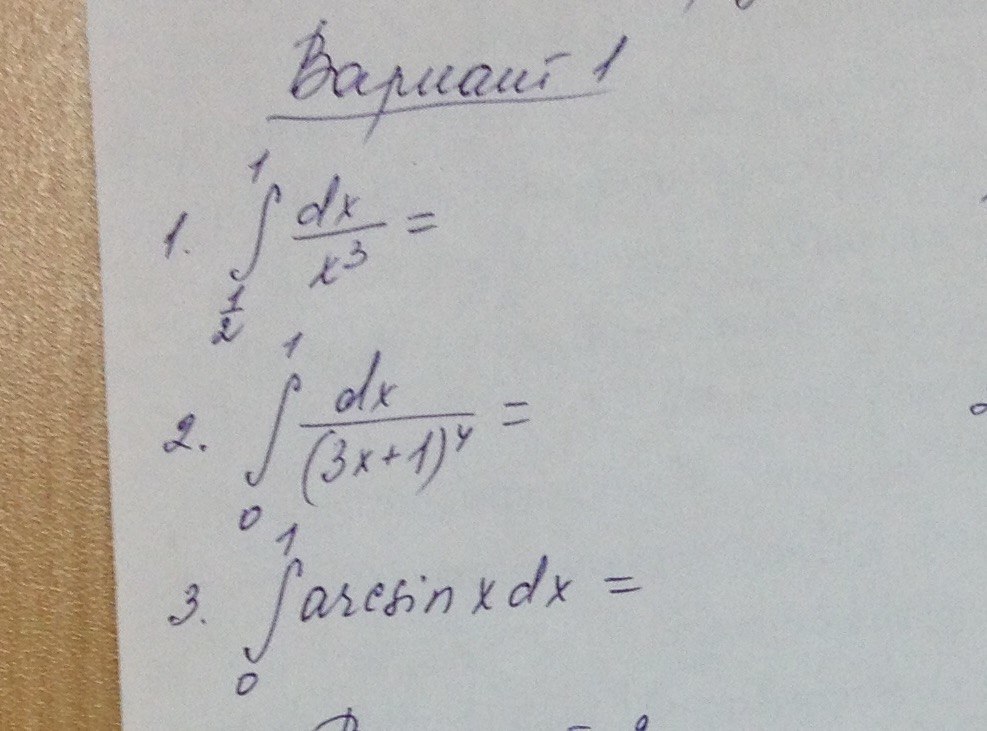 Вариант 1
1. ∫_{1/2}^{1} dx/x³ =
2. ∫_{0}^{1} dx/(3x+1)⁴ =
3. ∫_{0}^{1} arcsin x dx =